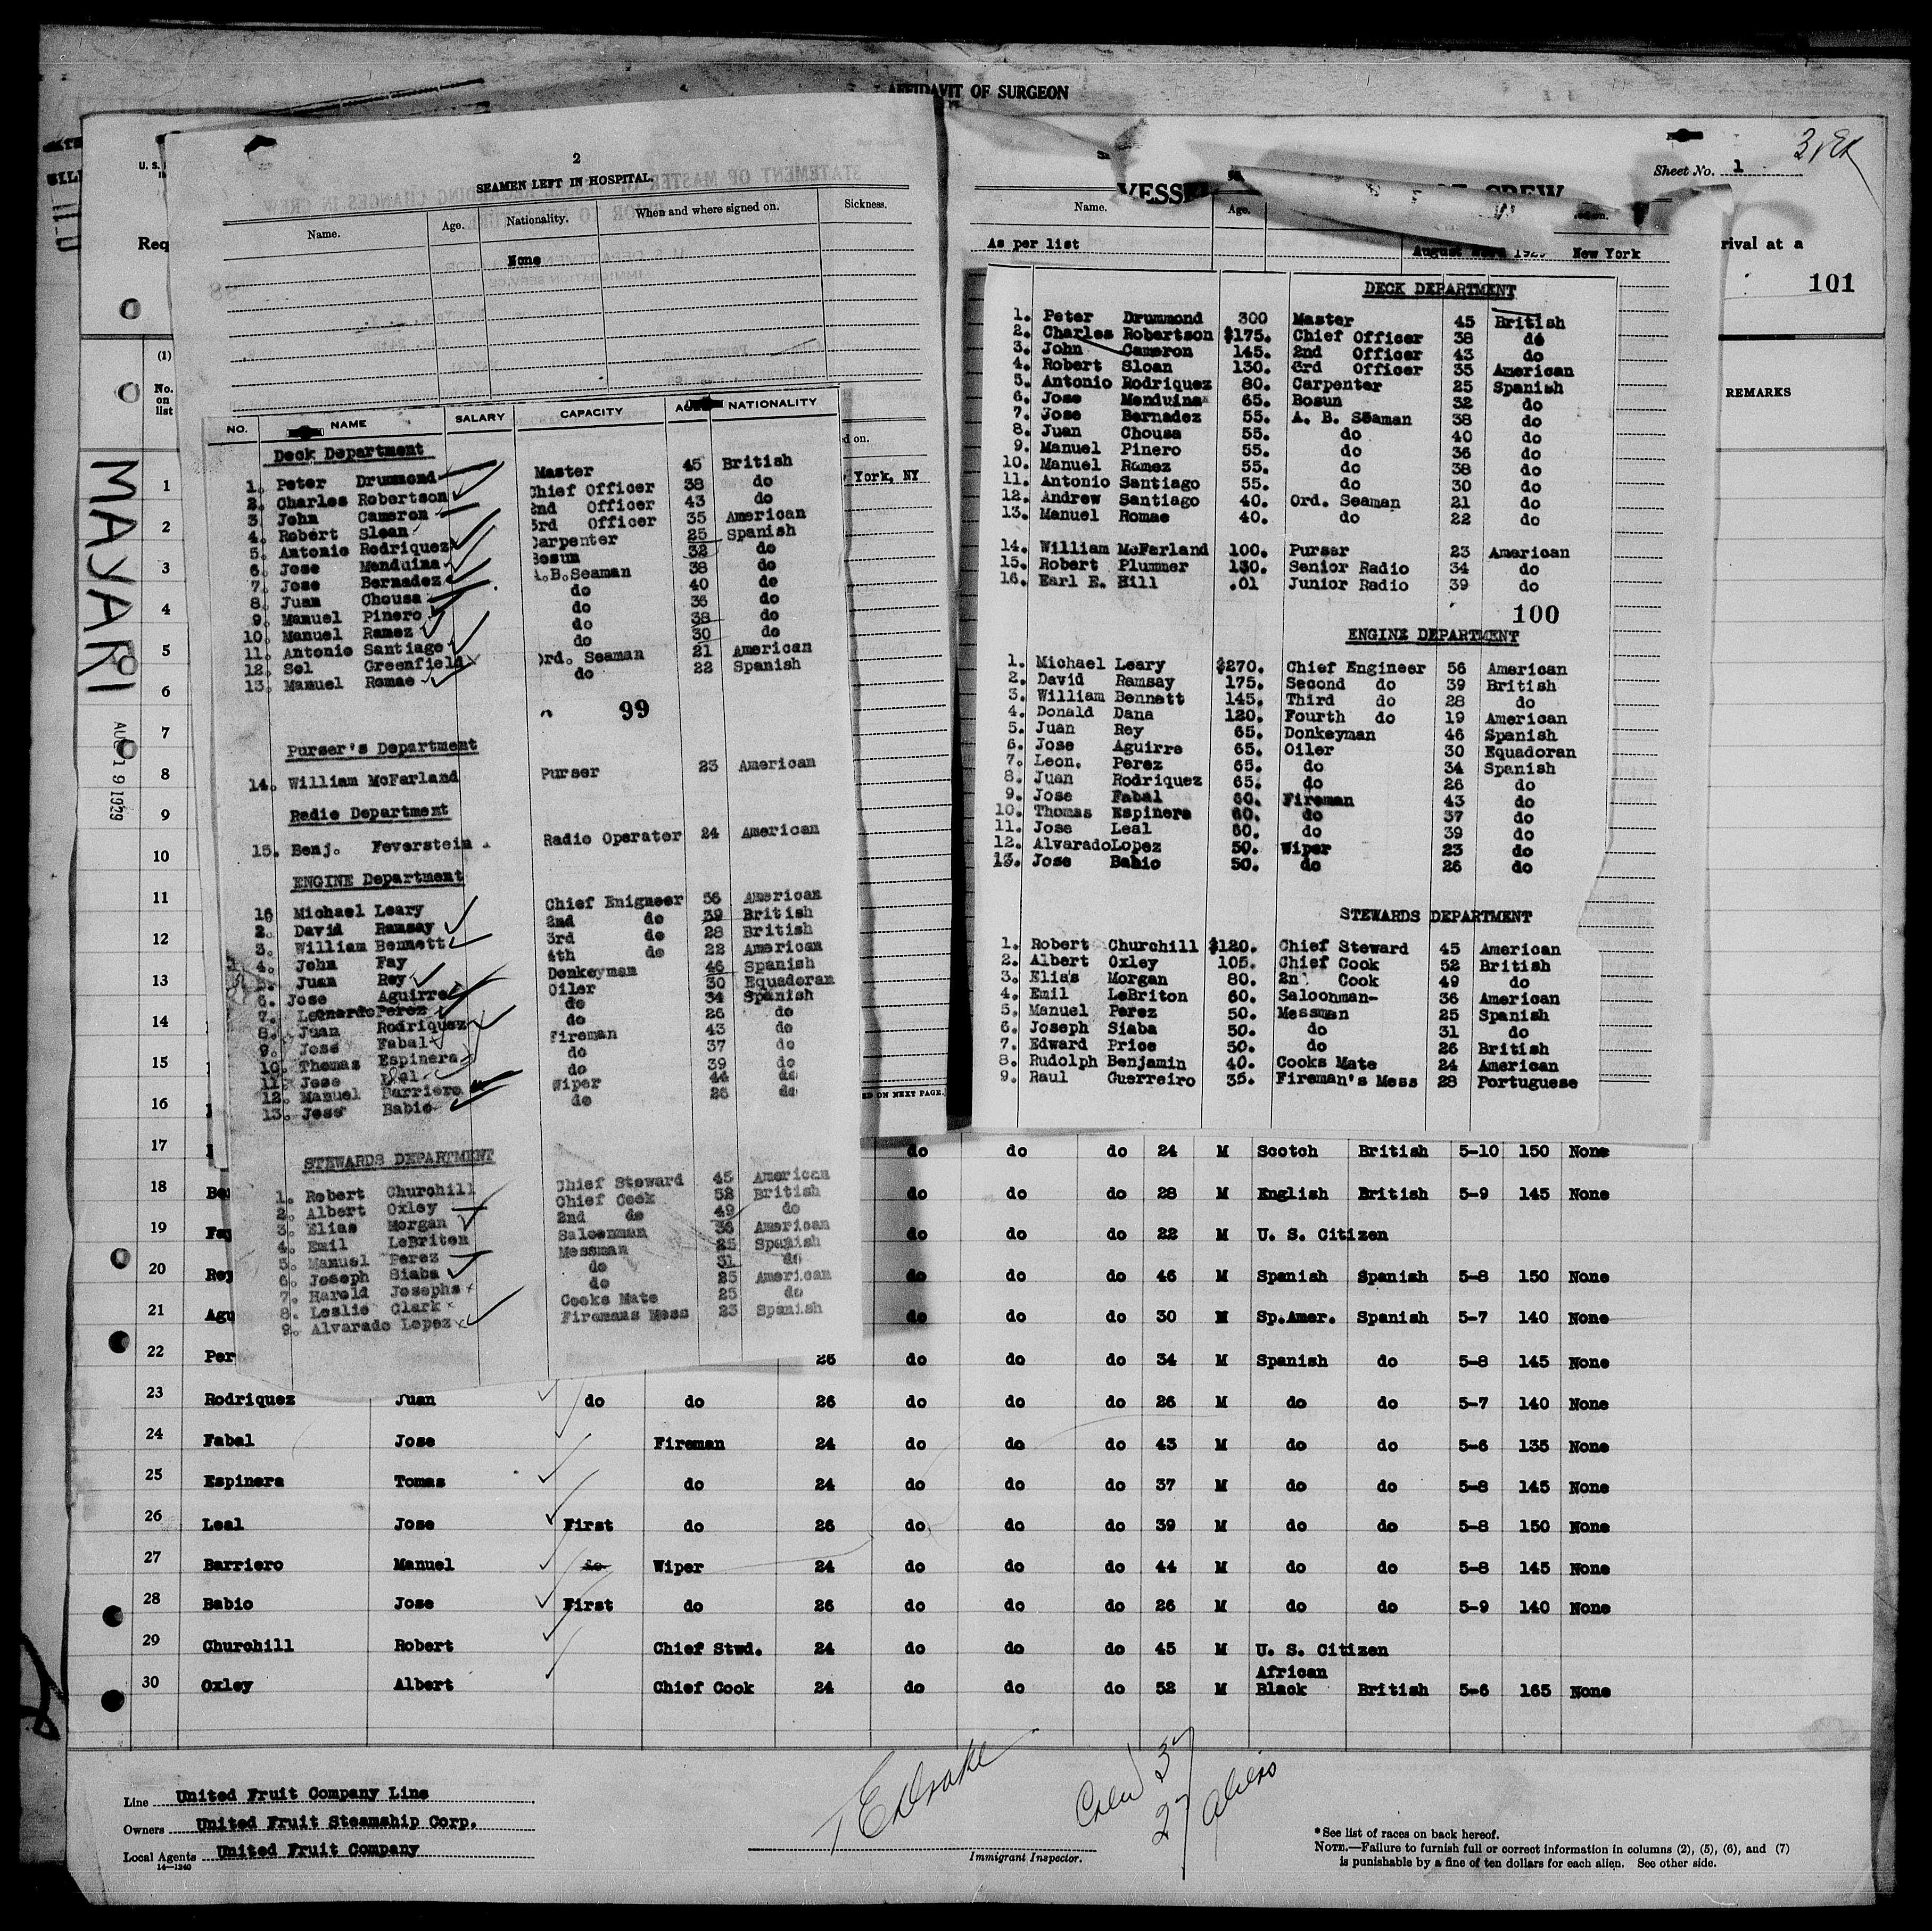 AFFIDAVIT OF SURGEON
3
Sheet No. 1
U. S.
Req
rival at a
101
REMARKS
(1)
No. on list
MAYARI
AUG 19 1929
2
SEAMEN LEFT IN HOSPITAL.
Name. Age. Nationality. When and where signed on. Sickness.
None
d on.
York, NY
ED ON NEXT PAGE.]
NO. NAME SALARY CAPACITY NATIONALITY
Deck Department
1. Peter Drummond Master 45 British
2. Charles Robertson Chief Officer 38 do
3. John Cameron 2nd Officer 43 do
4. Robert Sloan 3rd Officer 35 American
5. Antonio Rodriquez Carpenter 25 Spanish
6. Jose Menduina Bosun 32 do
7. Jose Bernadez A.B.Seaman 38 do
8. Juan Chousa do 40 do
9. Manuel Pinero do 36 do
10. Manuel Ramez do 38 do
11. Antonio Santiago do 30 do
12. Sol Greenfield Ord. Seaman 21 American
13. Manuel Romae do 22 Spanish
99
Purser's Department
14. William McFarland Purser 23 American
Radio Department
15. Benj. Feverstein Radio Operator 24 American
ENGINE Department
1 Michael Leary Chief Enigneer 56 American
2. David Ramsay 2nd do 39 British
3. William Bennett 3rd do 28 British
4. John Fay 4th do 22 American
5. Juan Rey Donkeyman 46 Spanish
6. Jose Aguirre Oiler 30 Equadoran
7. Leonardo Perez do 34 Spanish
8. Juan Rodriquez do 26 do
9. Jose Fabal Fireman 43 do
10. Thomas Espinera do 37 do
11. Jose Leal do 39 do
12. Manuel Barriero Wiper 44 do
13. Jose Babio do 26 do
STEWARDS DEPARTMENT
1. Robert Churchill Chief Steward 45 American
2. Albert Oxley Chief Cook 52 British
3. Elias Morgan 2nd do 49 do
4. Emil LeBriton Saloonman 36 American
5. Manuel Perez Messman 25 Spanish
6. Joseph Siaba do 31 do
7. Harold Josephs do 25 American
8. Leslie Clark Cooks Mate 25 do
9. Alvarado Lopez Firemans Mess 23 Spanish
VESSE CREW
Name. Age.
As per list August 1929 New York
DECK DEPARTMENT
1. Peter Drummond 300 Master 45 British
2. Charles Robertson $175. Chief Officer 38 do
3. John Cameron 145. 2nd Officer 43 do
4. Robert Sloan 130. 3rd Officer 35 American
5. Antonio Rodriquez 80. Carpenter 25 Spanish
6. Jose Menduina 65. Bosun 32 do
7. Jose Bernadez 55. A. B. Seaman 38 do
8. Juan Chousa 55. do 40 do
9. Manuel Pinero 55. do 36 do
10. Manuel Ramez 55. do 38 do
11. Antonio Santiago 55. do 30 do
12. Andrew Santiago 40. Ord. Seaman 21 do
13. Manuel Romae 40. do 22 do
14. William McFarland 100. Purser 23 American
15. Robert Plummer 130. Senior Radio 34 do
16. Earl E. Hill .01 Junior Radio 39 do
100
ENGINE DEPARTMENT
1. Michael Leary $270. Chief Engineer 56 American
2. David Ramsay 175. Second do 39 British
3. William Bennett 145. Third do 28 do
4. Donald Dana 120. Fourth do 19 American
5. Juan Rey 65. Donkeyman 46 Spanish
6. Jose Aguirre 65. Oiler 30 Equadoran
7. Leon. Perez 65. do 34 Spanish
8. Juan Rodriquez 65. do 26 do
9. Jose Fabal 60. Fireman 43 do
10. Thomas Espinera 60. do 37 do
11. Jose Leal 60. do 39 do
12. AlvaradoLopez 50. Wiper 23 do
13. Jose Babio 50. do 26 do
STEWARDS DEPARTMENT
1. Robert Churchill $120. Chief Steward 45 American
2. Albert Oxley 105. Chief Cook 52 British
3. Elias Morgan 80. 2n Cook 49 do
4. Emil LeBriton 60. Saloonman- 36 American
5. Manuel Perez 50. Messman 25 Spanish
6. Joseph Siaba 50. do 31 do
7. Edward Price 50. do 26 British
8. Rudolph Benjamin 40. Cooks Mate 24 American
9. Raul Guerreiro 35. Fireman's Mess 28 Portuguese
1
2
3
4
5
6
7
8
9
10
11
12
13
14
15
16
17 do do do 24 M Scotch British 5-10 150 None
18 Be do do do 28 M English British 5-9 145 None
19 Fay do do do 22 M U. S. Citizen
20 Rey do do do 46 M Spanish Spanish 5-8 150 None
21 Agu do do do 30 M Sp.Amer. Spanish 5-7 140 None
22 Per 26 do do do 34 M Spanish do 5-8 145 None
23 Rodriquez Juan do do 26 do do do 26 M do do 5-7 140 None
24 Fabal Jose Fireman 24 do do do 43 M do do 5-6 135 None
25 Espinera Tomas do 24 do do do 37 M do do 5-8 145 None
26 Leal Jose First do 26 do do do 39 M do do 5-8 150 None
27 Barriero Manuel do Wiper 24 do do do 44 M do do 5-8 145 None
28 Babio Jose First do 26 do do do 26 M do do 5-9 140 None
29 Churchill Robert Chief Stwd. 24 do do do 45 M U. S. Citizen
30 Oxley Albert Chief Cook 24 do do do 52 M African Black British 5-6 165 None
Line United Fruit Company Line
Owners United Fruit Steamship Corp.
Local Agents United Fruit Company
14—1240
Immigrant Inspector.
Crew 37
27 aliens
*See list of races on back hereof.
NOTE.—Failure to furnish full or correct information in columns (2), (5), (6), and (7)
is punishable by a fine of ten dollars for each alien. See other side.